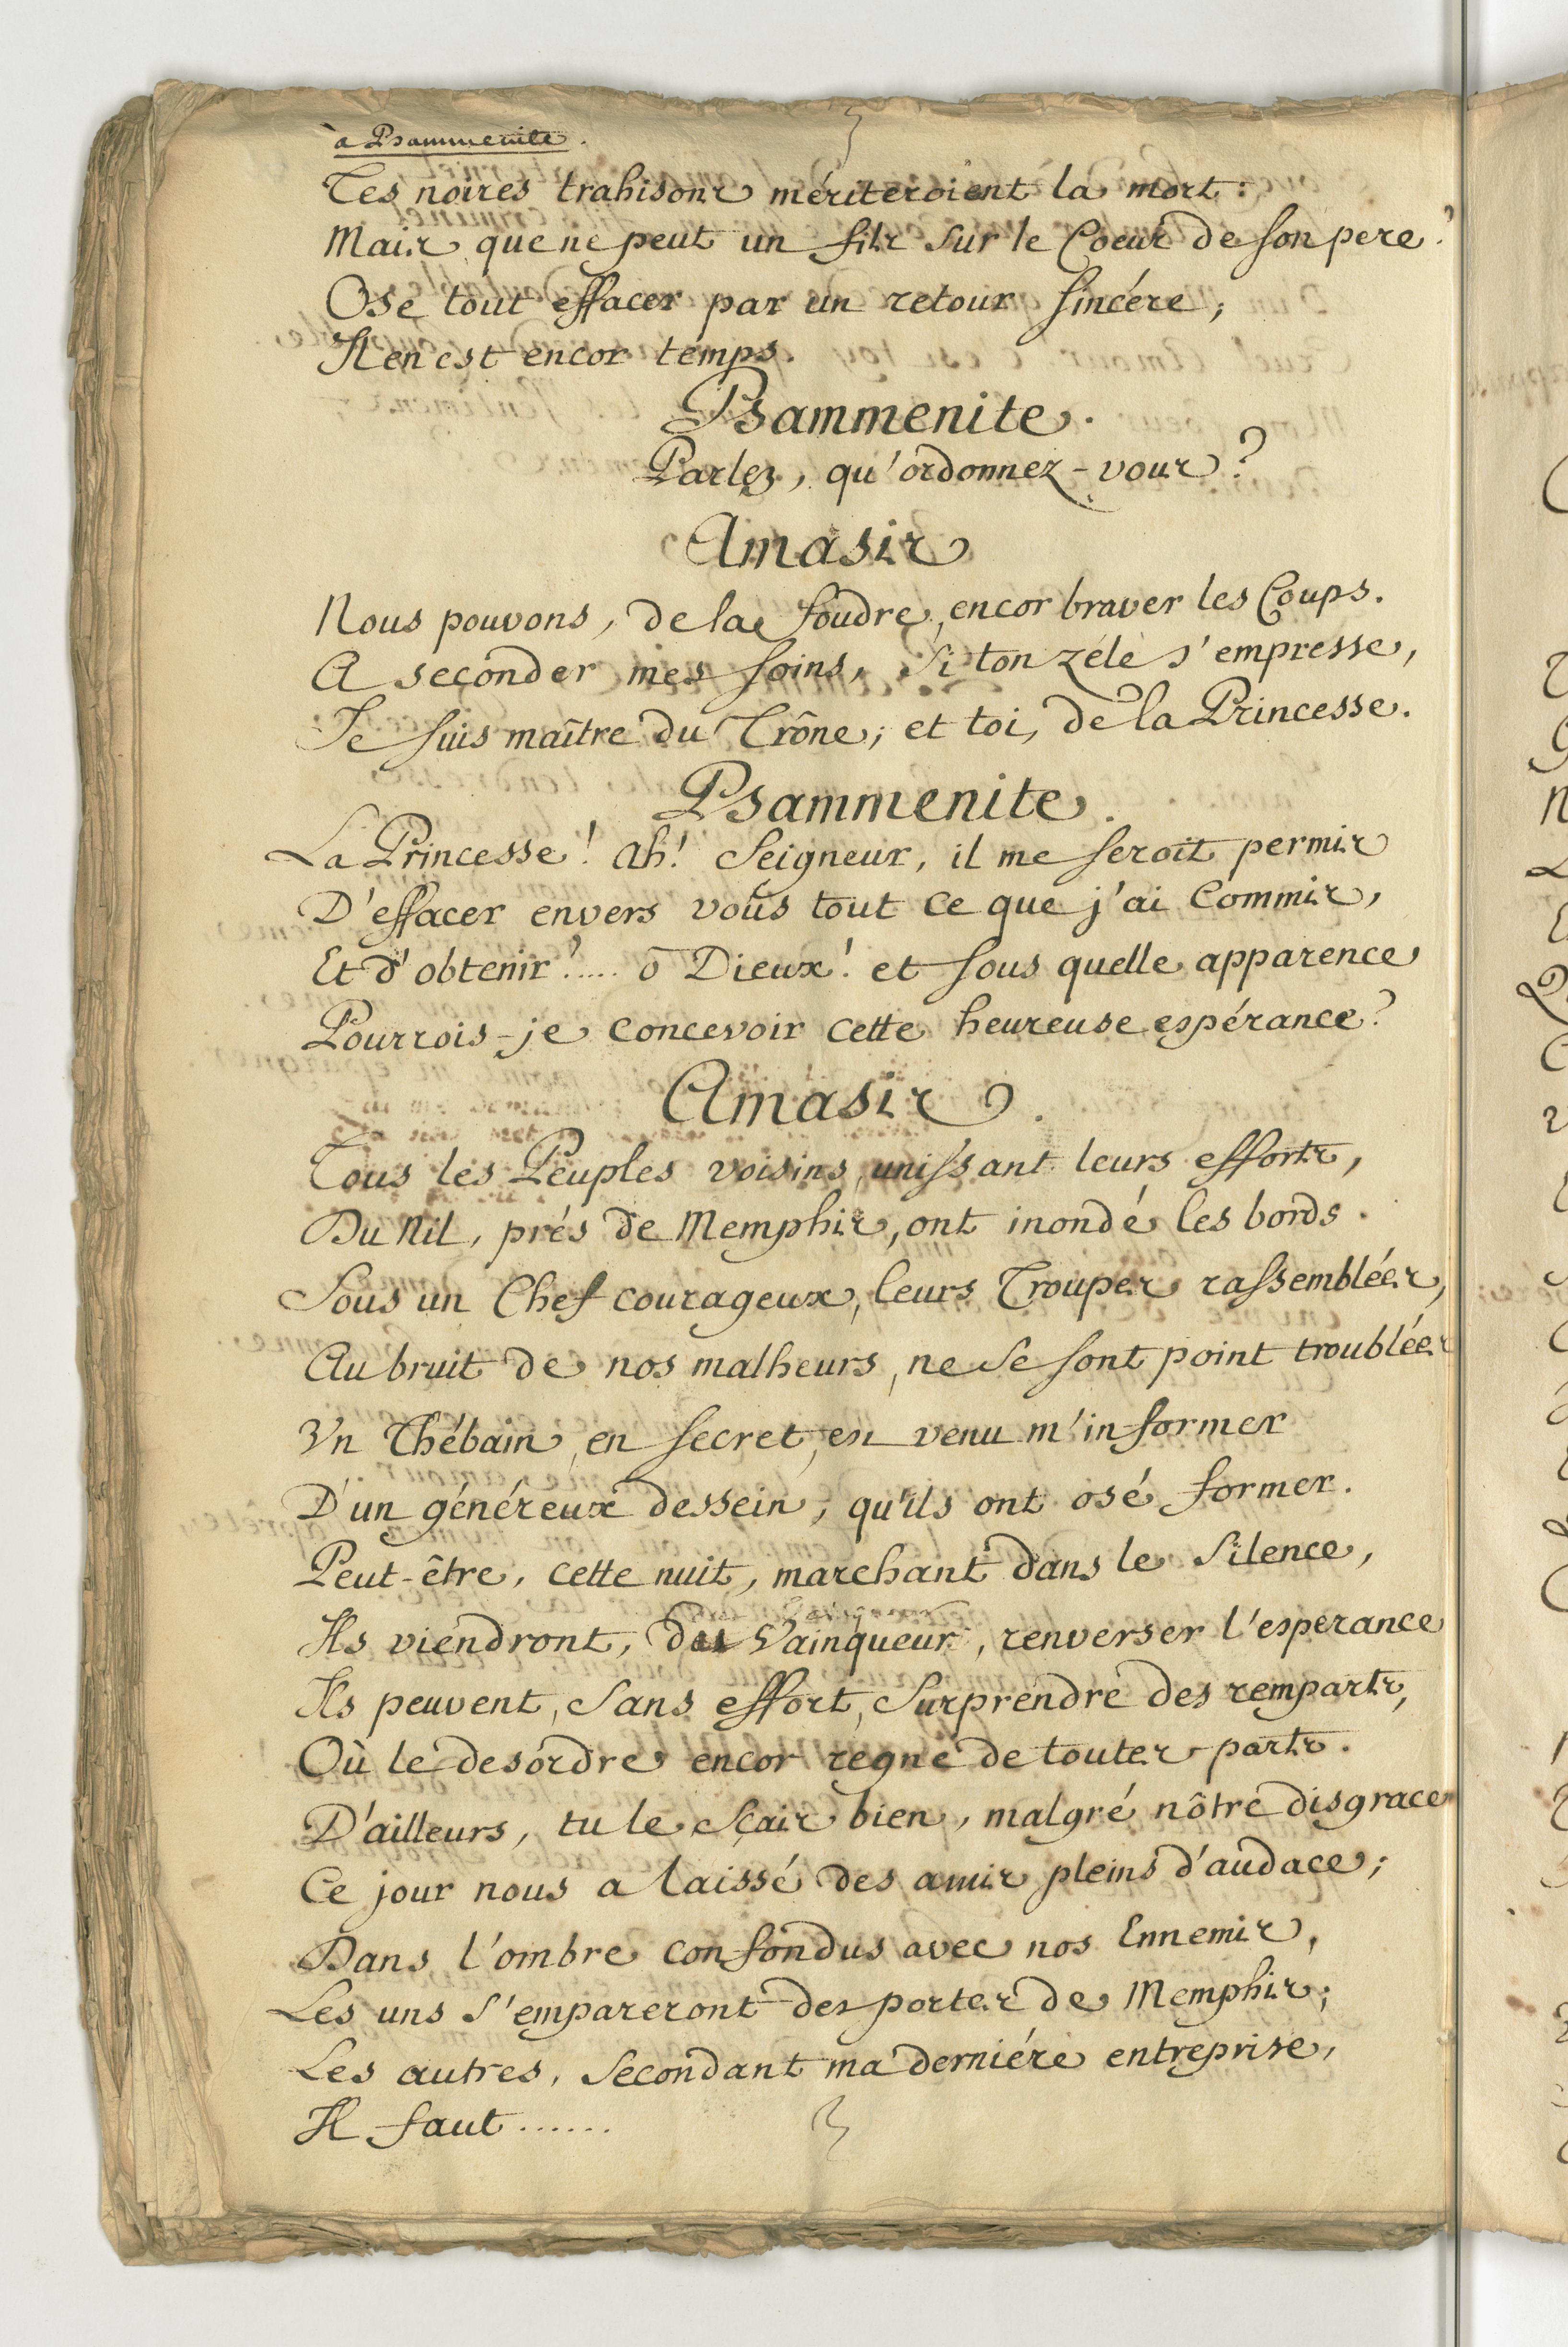 à Psammenite.
Tes noires trahisons mériteroient la mort:
Mais que ne peut un fils sur le Coeur de son pere?
Ose tout effacer par un retour sincére;
Il en est encor temps.
Psammenite.
Parlez, qu'ordonnez-vous?
Amasis
Nous pouvons, de la foudre, encor braver les Coups.
A seconder mes soins, si ton zéle s'empresse,
Je suis maître du Trône; et toi, de la Princesse.
Psammenite.
La Princesse! ah! Seigneur, il me seroit permis
D'effacer envers vous tout ce que j'ai commis,
Et d'obtenir!..... ô Dieux! et sous quelle apparence
Pourrois-je concevoir cette heureuse espérance?
Amasis.
Tous les Peuples voisins, unissant leurs efforts,
Du Nil, prés de Memphis, ont inondé les bords.
Sous un Chef courageux, leurs Troupes rassemblées,
Au bruit de nos malheurs, ne se sont point troublées
Un Thébain, en secret, est venu m'informer
D'un généreux dessein, qu'ils ont osé former.
Peut-être, cette nuit, marchant dans le silence,
Ils viendront, du Vainqueur, renverser l'esperance
Ils peuvent, sans effort, surprendre des remparts,
Où le desordre encor regne de toutes parts.
D'ailleurs, tu le sçais bien, malgré nôtre disgrace
Ce jour nous a laissé des amis pleins d'audace;
Dans l'ombre confondus avec nos Ennemis,
Les uns s'empareront des portes de Memphis;
Les autres, secondant ma derniére entreprise,
Il faut......